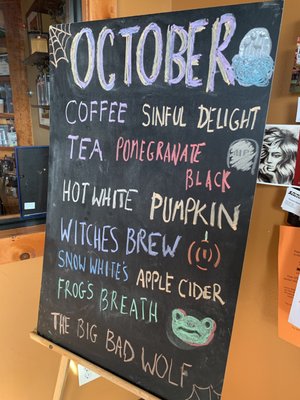 OCTOBER
COFFEE SINFUL DELIGHT
TEA POMEGRANATE
BLACK
HOT WHITE PUMPKIN
WITCHES BREW
SNOW WHITE'S APPLE CIDER
FROGS BREATH
THE BIG BAD WOLF